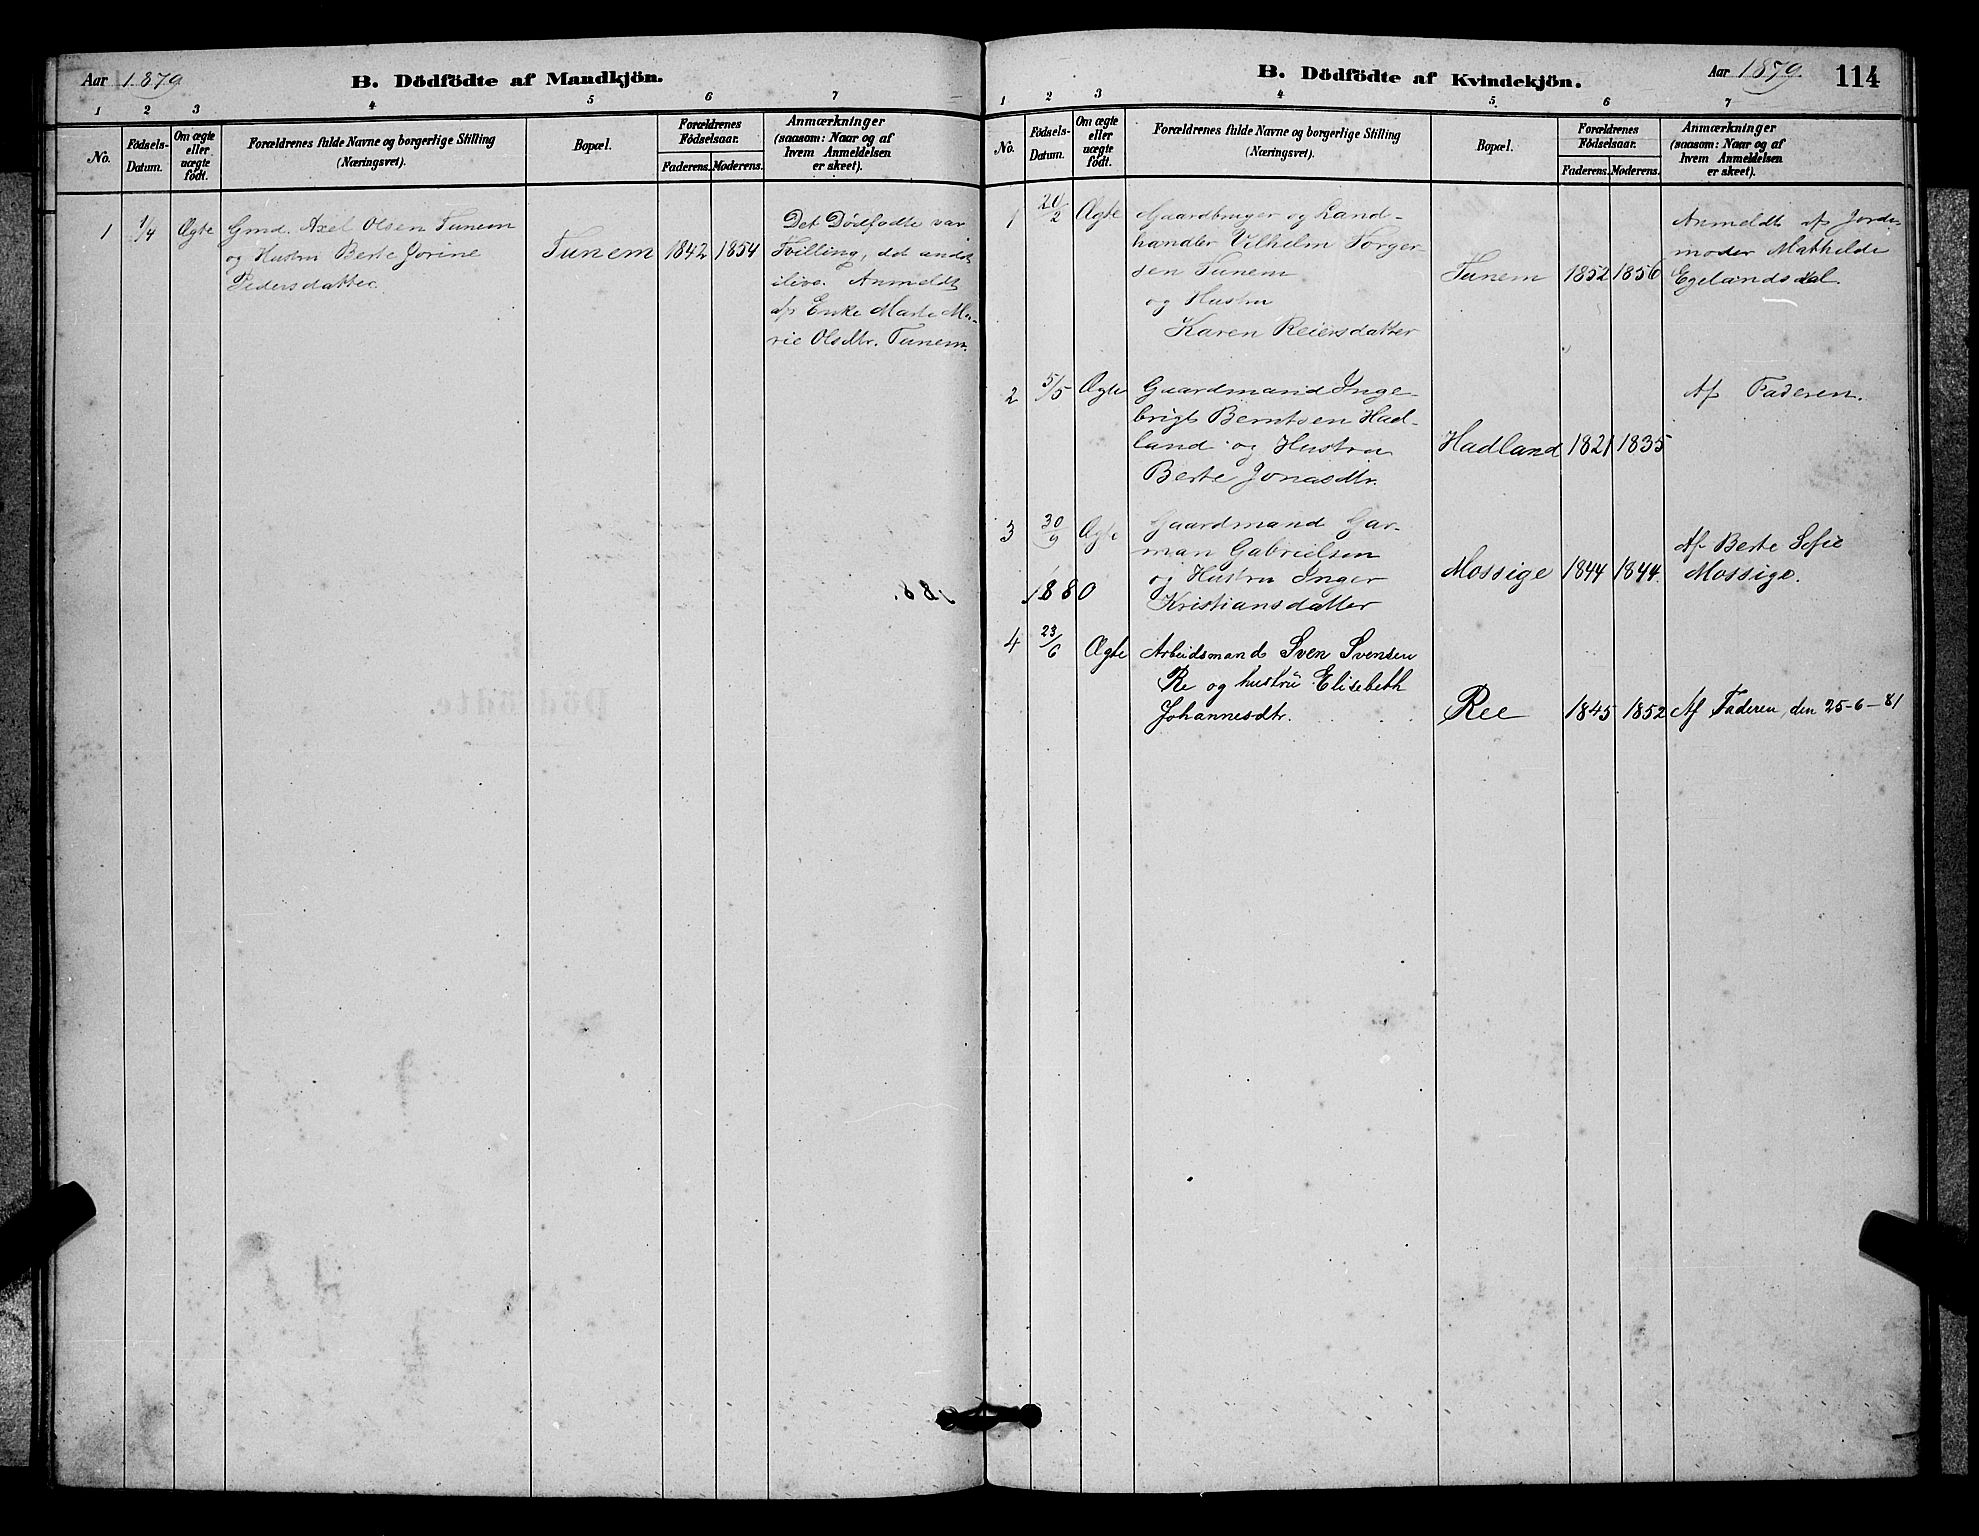 Aar 1879.
B. Dödfödte af Mandkjön.
1 2 3 4 5 6 7
No.
Födsels-
Datum.
Om ægte
eller
uægte
födt.
Forældrenes fulde Navne og borgerlige Stilling
(Næringsvei).
Bopæl.
Forældrenes
Födselsaar.
Faderens. Moderens.
Anmærkninger
(saasom: Naar og af
hvem Anmeldelsen
er skeet).
1 1/4 Ægte Gmd. Axel Olsen Tunem
og Hustru Berte Jorine
Pedersdatter
Tunem 1842 1854
Det Dödfødte var
Tvilling, det andet
ilive. Anmeldt
af Enke Marte Ma-
rie Olsdtr. Tunem.
B. Dödfödte af Kvindekjön.
Aar 1879.
114
1 2 3 4 5 6 7
No.
Födsels-
Datum.
Om ægte
eller
uægte
födt.
Forældrenes fulde Navne og borgerlige Stilling
(Næringsvei).
Bopæl.
Forældrenes
Födselsaar.
Faderens. Moderens.
Anmærkninger
(saasom: Naar og af
hvem Anmeldelsen
er skeet).
1 20/2 Ægte Gaardbruger og Land-
handler Vilhelm Torger-
sen Tunem
og Hustru
Karen Reiersdatter
Tunem 1852 1856
Anmeldt af Jorde-
moder Mathilde
Egelandsdal.
2 5/5 Ægte Gaardmand Inge-
brigt Berntsen Had-
land og Hustru
Berte Jonasdtr.
Hadland 1821 1835
Af Faderen.
3 30/9 Ægte Gaardmand Gar-
man Gabrielsen
og Hustru Inger
Kristiansdatter
Mossige 1844 1844.
Af Berte Sofie
Mossige.
1880
4 23/6 Ægte Arbeidsmand Sven Svensen
Re og hustru Elisebeth
Johannesdtr.
Ree 1845 1852 Af Faderen, den 25-6-81